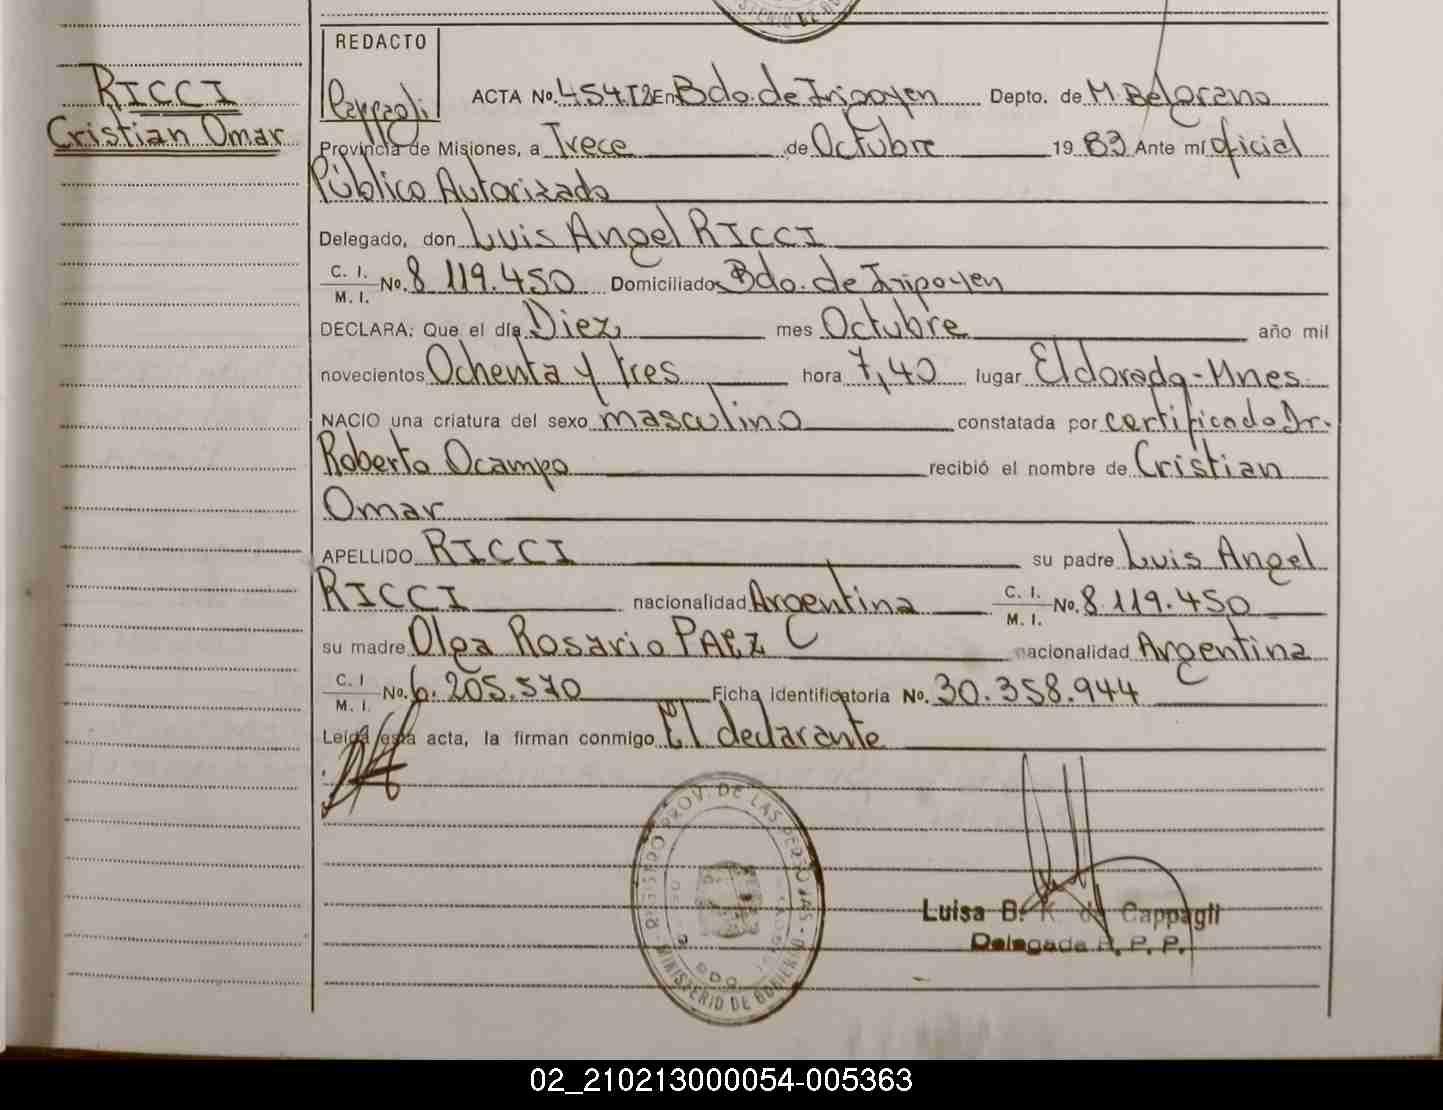 REDACTO
RICCI
Cristian Omar
Cappagli
ACTA No. 454 T2 En Bdo. de Irigoyen Depto. de M. Belgrano
Provincia de Misiones, a Trece de Octubre 19 83 Ante mí oficial
Público Autorizado
Delegado, don Luis Angel RICCI
C. I. M. I. No. 8 119.450 Domiciliado Bdo. de Irigoyen
DECLARA: Que el día Diez mes Octubre año mil
novecientos Ochenta y tres hora 7,40 lugar Eldorado-Mnes.
NACIO una criatura del sexo masculino constatada por certificado Dr.
Roberto Ocampo recibió el nombre de Cristian
Omar
APELLIDO RICCI su padre Luis Angel
RICCI nacionalidad Argentina C. I. M. I. No. 8.119.450
su madre Olga Rosario PAEZ C nacionalidad Argentina
C. I M. I. No. 6.205.570 Ficha identificatoria No. 30.358.944
Leída esta acta, la firman conmigo El declarante
REGISTRO PROV. DE LAS PERSONAS
MINISTERIO DE GOBIERNO
Luisa B. K. de Cappagli
Delegada R. P. P.
02_210213000054-005363